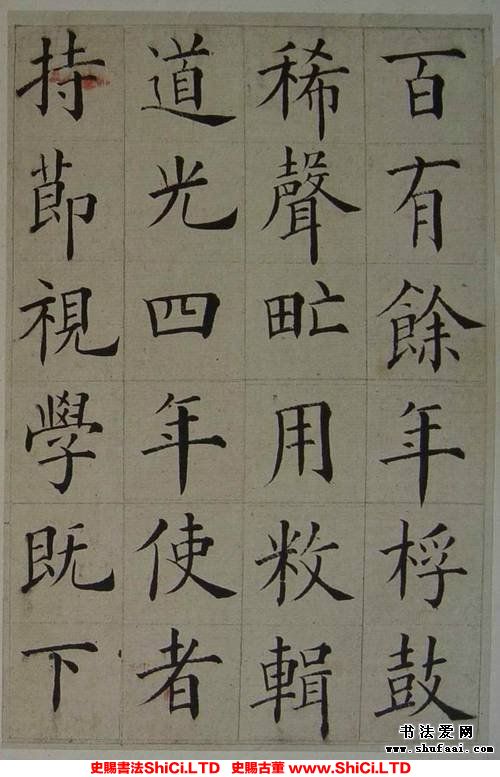 百有餘年桴鼓
稀聲甿用敉輯
道光四年使者
持節視學既下
书法爱网
www.shufaai.com
史賜書法ShiCi.LTD 史賜古董 www.ShiCi.LTD